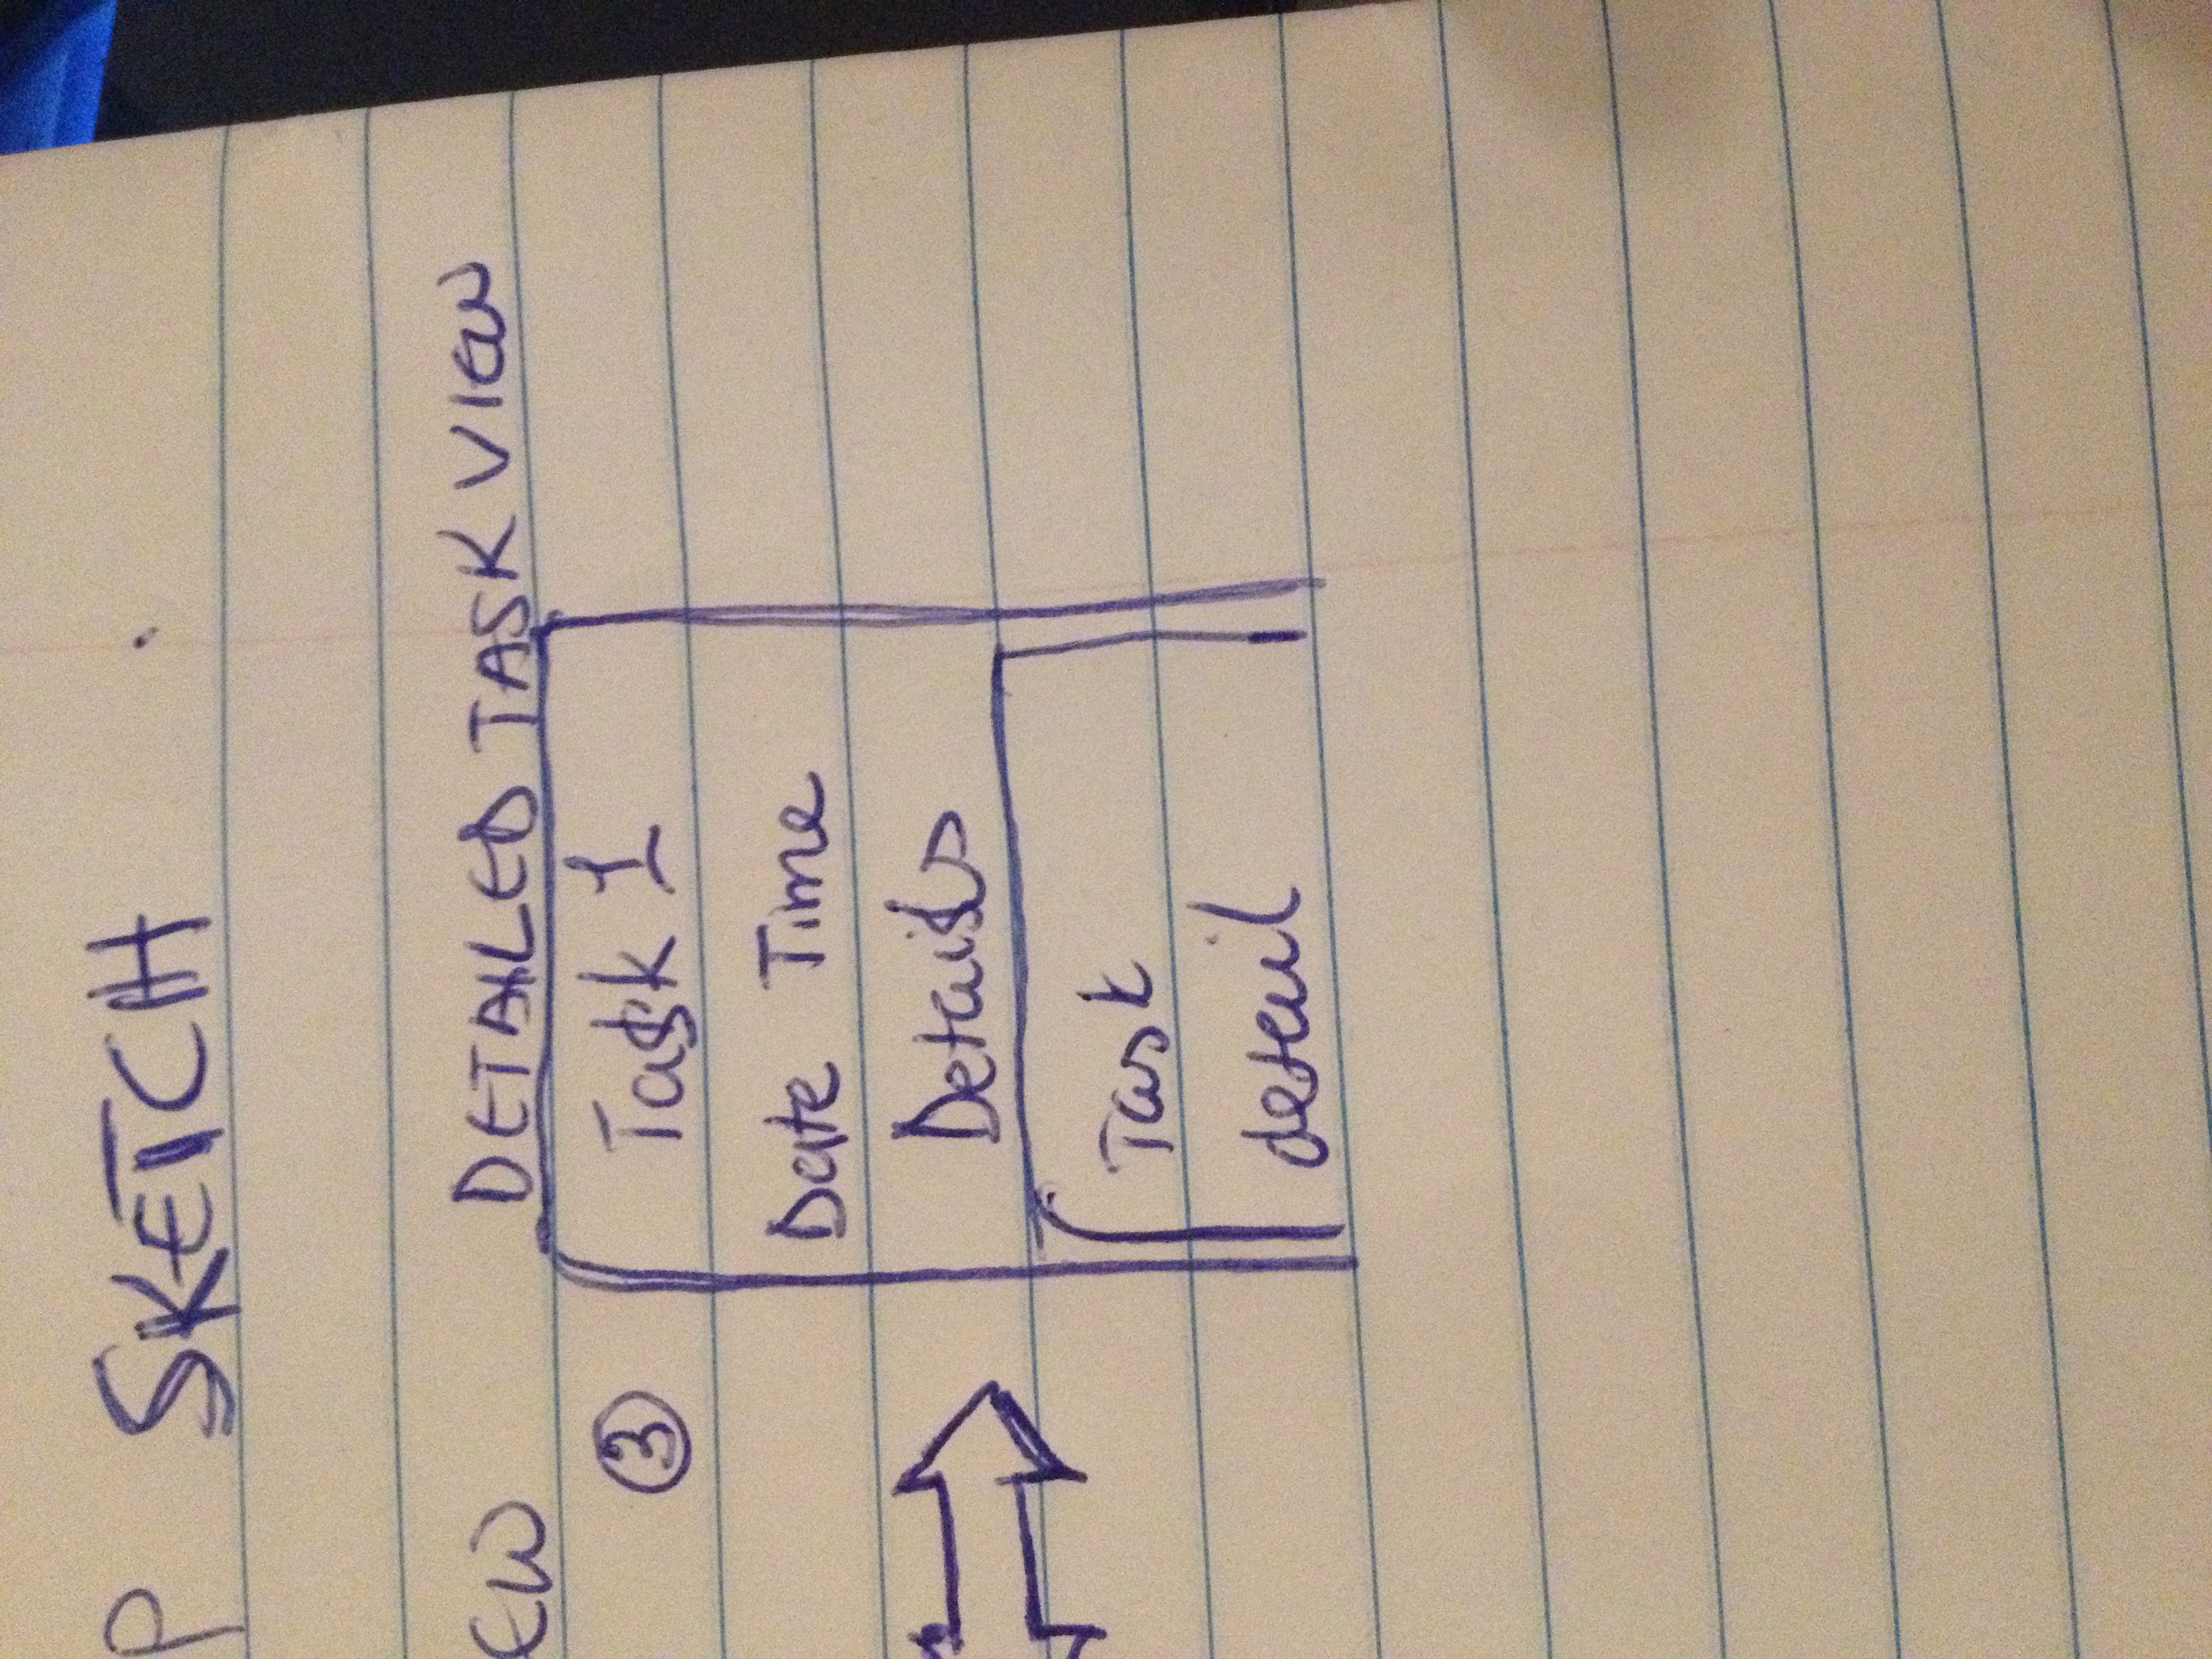 P SKETCH
EW DETAILED TASK VIEW
3 Task 1
Date Time
Details
Task
detail